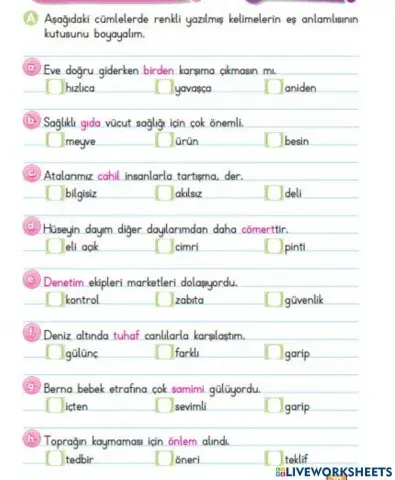 A Aşağıdaki cümlelerde renkli yazılmış kelimelerin eş anlamlısının
kutusunu boyayalım.
a. Eve doğru giderken birden karşıma çıkmasın mı.
hızlıca yavaşça aniden
b. Sağlıklı gıda vücut sağlığı için çok önemli.
meyve ürün besin
c. Atalarımız cahil insanlarla tartışma, der.
bilgisiz akılsız deli
d. Hüseyin dayım diğer dayılarımdan daha cömerttir.
eli açık cimri pinti
e. Denetim ekipleri marketleri dolaşıyordu.
kontrol zabıta güvenlik
f. Deniz altında tuhaf canlılarla karşılaştım.
gülünç farklı garip
g. Berna bebek etrafına çok samimi gülüyordu.
içten sevimli garip
h. Toprağın kaymaması için önlem alındı.
tedbir öneri teklif
LIVEWORKSHEETS